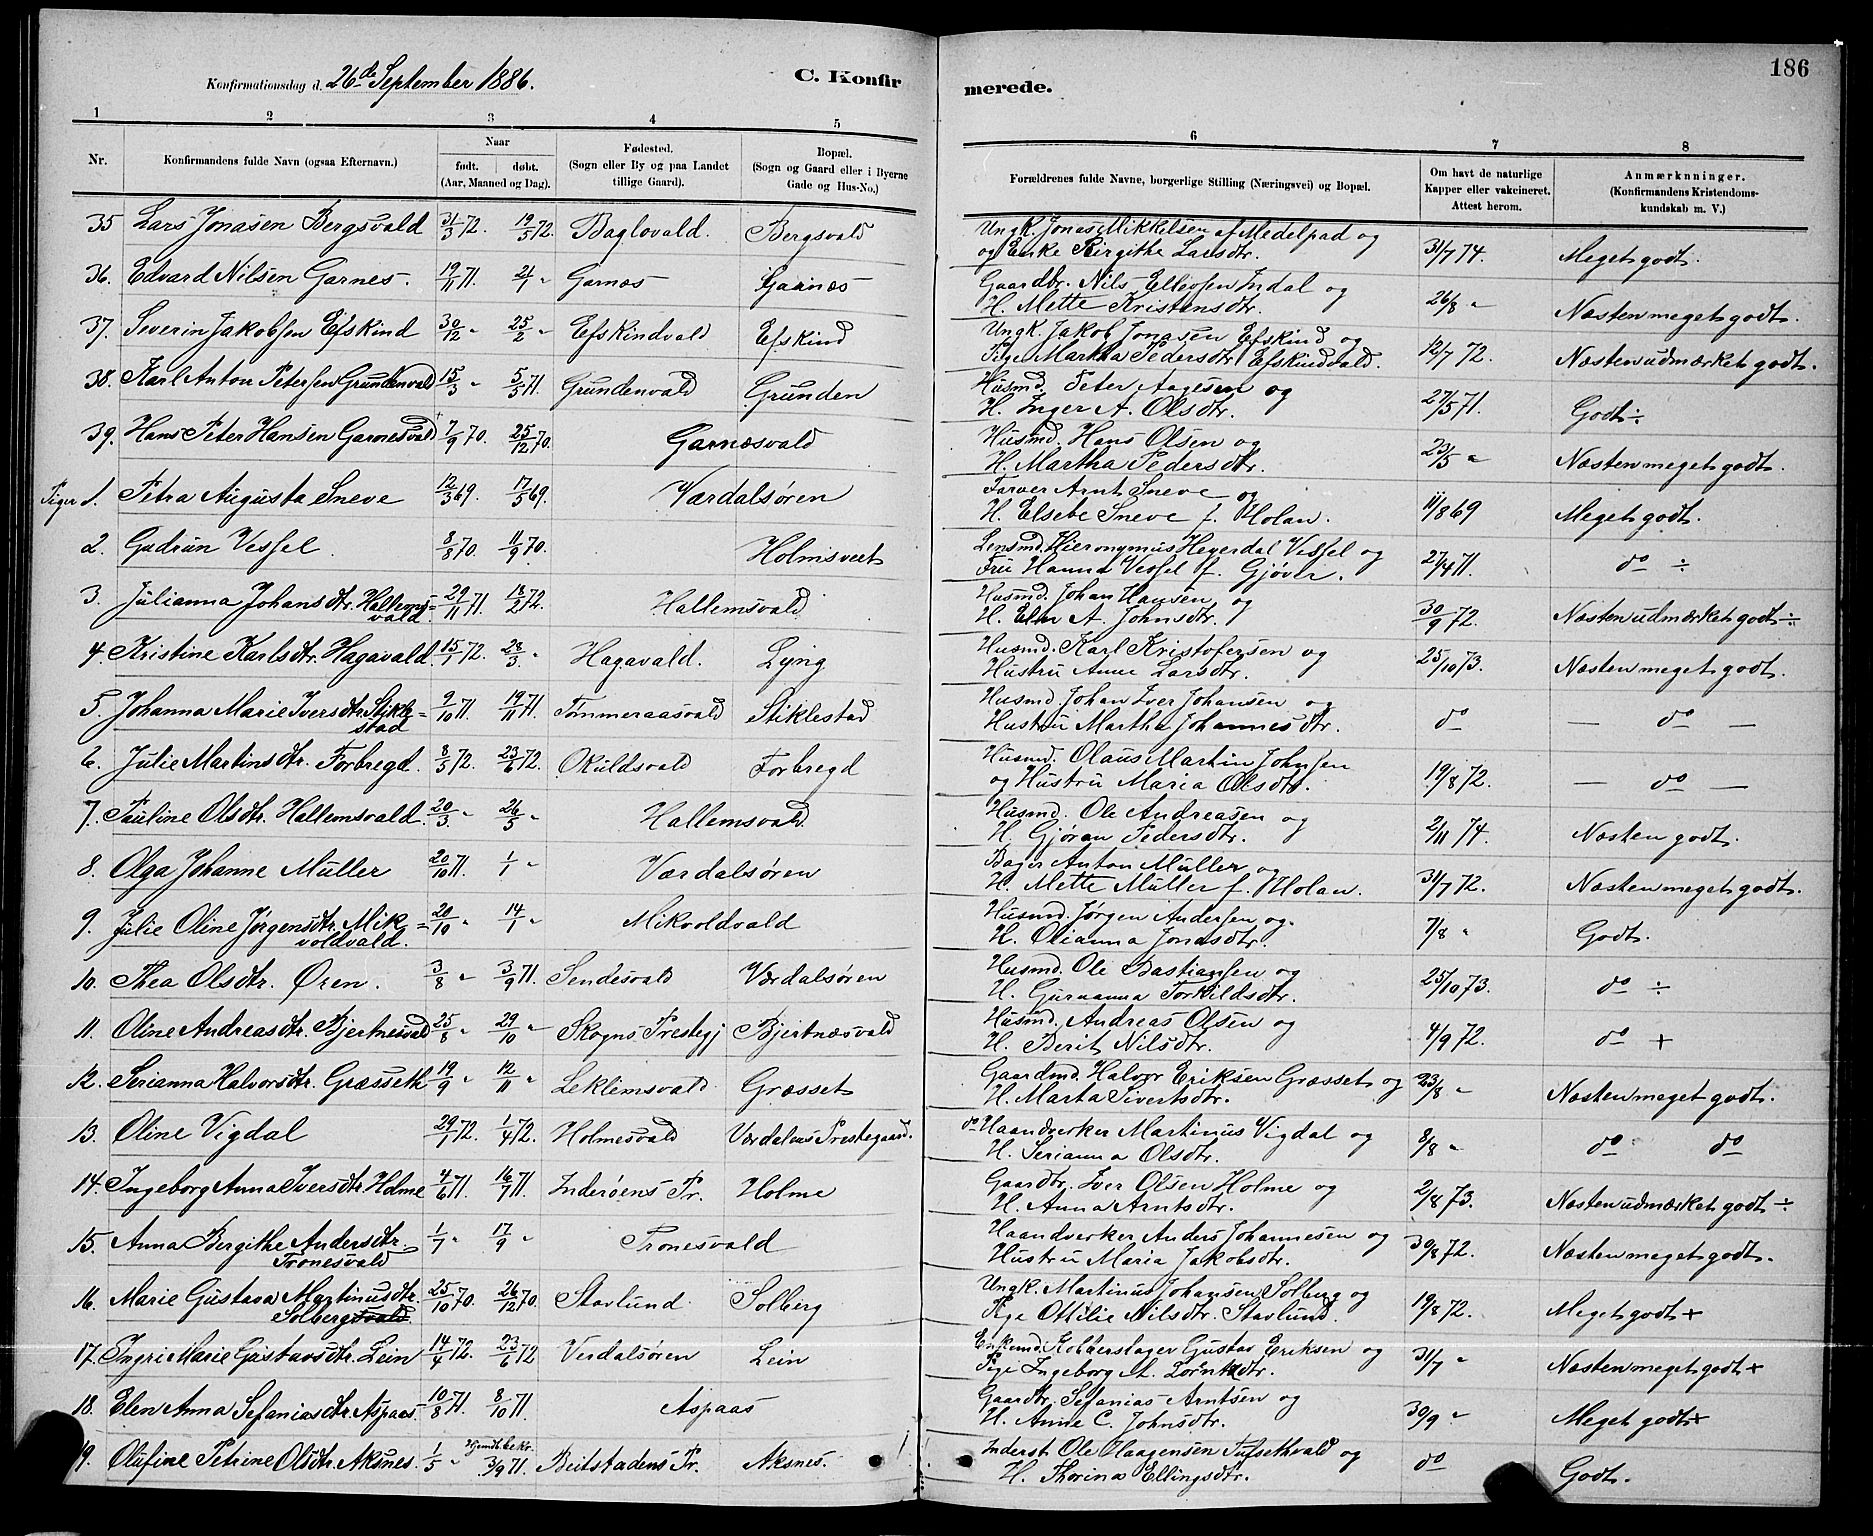 186
Konfirmationsdag d. 26de September 1886.
C. Konfirmerede.
1 2 3 4 5 6 7 8
Nr. Konfirmandens fulde Navn (ogsaa Efternavn.) Naar født. døbt. (Aar, Maaned og Dag). Fødested. (Sogn eller By og paa Landet tillige Gaard). Bopæl. (Sogn og Gaard eller i Byerne Gade og Hus-No.) Forældrenes fulde Navne, borgerlige Stilling (Næringsvei) og Bopæl. Om havt de naturlige Kapper eller vakcineret. Attest herom. Anmærknninger. (Konfirmandens Kristendomskundskab m. V.)
35 Lars Jonasen Bergsvald 31/3 72. 19/5 72. Baglovald. Bergsvald Ungk. Jonas Mikkelsen af Medelpad og
og Enke Birgithe Larsdtr. 31/7 74. Meget godt.
36. Edvard Nilsen Garnes. 19/11 71. 21/1 " Garnæs Gaarnæs Gaardbr. Nils Ellevsen Indal og
H. Mette Kristensdtr. 26/8 " Næsten meget godt.
37. Severin Jakobsen Efskind 30/12 " 25/2 " Efskindvald Efskind Ungk. Jakob Jonasen Efskind og
Pige Martha Pedersdtr. Efskindvald. 12/7 72. Næsten udmærket godt.
38. Karl Anton Petersen Grundenvald 15/3 " 5/5 71. Grundenvald Grunden Husmd. Peter Aagesen og
H. Inger A. Olsdtr. 27/5 71. Godt ÷
39. Hans Peter Hansen Garnesvald 7/9 70. 25/12 70. Garnæsvald Husmd. Hans Olsen og
H. Martha Pedersdtr. 23/5 " Næsten meget godt.
Piger 1. Petra Augusta Sneve 12/3 69. 17/5 69. Værdalsøren Farver Arnt Sneve og
H. Elsebe Sneve f. Holan. 11/8 69 Meget godt.
2. Gudrun Vessel. 8/8 70. 11/9 70. Holmsveet Lensmd. Hieronymus Heyerdal Vessel og
Fru Hanna Vessel f. Gjøvir. 27/4 71. do ÷
3. Julianna Johansdtr. Hallems=
vald. 29/11 71. 18/2 72. Hallemsvald Husmd. Johan Hansen og
H. Elen A. Johnsdtr. 30/9 72. Næsten udmærket godt ÷
4. Kristine Karlsdtr. Hagavald. 15/1 72. 28/3 " Hagavald. Lyng Husmd. Karl Kristofersen og
Hustru Anne Larsdtr. 25/10 73. Næsten meget godt.
5. Johanna Marie Iversdtr. Stikle=
stad 9/10 71. 19/11 71. Tømmeraasvald Stiklestad Husmd. Johan Iver Johansen og
Hustru Martha Johannesdtr. do — do —
6. Julie Martinsdtr. Forbregd. 8/5 72. 23/6 72. Okuldsvald Forbregd Husmd. Olaus Martin Johnsen
og Hustru Maria Olsdtr. 19/8 72. — do —
7. Pauline Olsdtr. Hallemsvald. 20/3 " 26/5 " Hallemsvald. Husmd. Ole Andreasen og
H. Gjøran Pedersdtr. 2/11 74. Næsten godt.
8. Olga Johanne Müller 20/10 71. 1/1 " Værdalsøren Bager Anton Müller og
H. Mette Müller f. Holan. 31/7 72. Næsten meget godt.
9. Julie Oline Jørgensdtr. Mik=
voldvald. 20/10 " 14/1 " Mikvoldvald Husmd. Jørgen Andersen og
H. Olianna Jonasdtr. 7/8 " Godt.
10. Thea Olsdtr. Øren. 3/8 " 3/9 71. Sendesvald Værdalsøren Husmd. Ole Bastiansen og
H. Gurnanna Torkildsdtr. 25/10 73. do ÷
11. Oline Andreasdtr. Bjertnesvald 25/8 " 29/10 " Skogns Prestegj Bjertnæsvald Husmd. Andreas Olsen og
H. Berit Nilsdtr. 4/9 72. do +
12. Serianna Halvorsdtr. Græsseth 19/9 " 12/11 " Leklemsvald Græsset Gaardmd. Halvor Eriksen Græsset og
H. Marta Sivertsdtr. 23/8 " Næsten meget godt.
13. Oline Vigdal 29/1 72. 1/4 72. Holmesvald Værdalens Prestegaard. do Haandverker Martinus Vigdal og
H. Serianna Olsdtr. 8/8 " do do
14. Ingeborg Anna Iversdtr. Holme 4/6 71. 16/7 71. Inderøens Pr. Holme Gaardbr. Iver Olsen Holme og
H. Anna Arntsdtr. 2/8 73. Næsten udmærket godt ÷
15. Anna Bergithe Andersdtr.
Tronesvald 1/7 " 17/9 " Tronesvald Haandverker Anders Johannesen og
Hustru Maria Jakobsdtr. 30/8 72. Næsten meget godt.
16. Marie Gustava Martinusdtr.
Solbergsvald 25/10 70. 26/12 70. Stavlund. Solberg Ungk. Martinus Johansen Solberg og
Pige Ottilie Nilsdtr. Stavlund. 19/8 72. Meget godt +
17. Ingri Marie Gustavsdtr. Lein 14/4 72. 23/6 72 Verdalsøren Lein Enkemd. Kobberslager Gustav Eriksen og
Pige Ingeborg M. Tørntdtr. 31/7 " Næsten meget godt +
18. Elen Anna Sefaniasdtr. Aspaas. 10/8 71. 8/10 71. Aspaas Gaardbr. Sefanias Arntsen og
H. Anne C. Johnsdtr. 30/9 " Meget godt +
19. Olufine Petrine Olsdtr. Aksnes. 1/5 " Hjemdb. bekr. 3/9 71. Beitstadens Pr. Aksnes. Inderst Ole Haagensen Tufsethvald og
H. Thorina Ellingsdtr. do Godt.